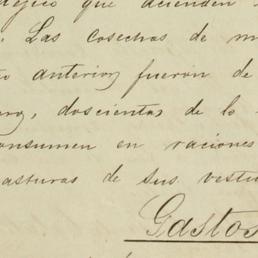 que acienden
. Las cosechas de m
anterior fueron de
doscientas de lo
onsumen en raciones
asturas de sus vestu
Gastos